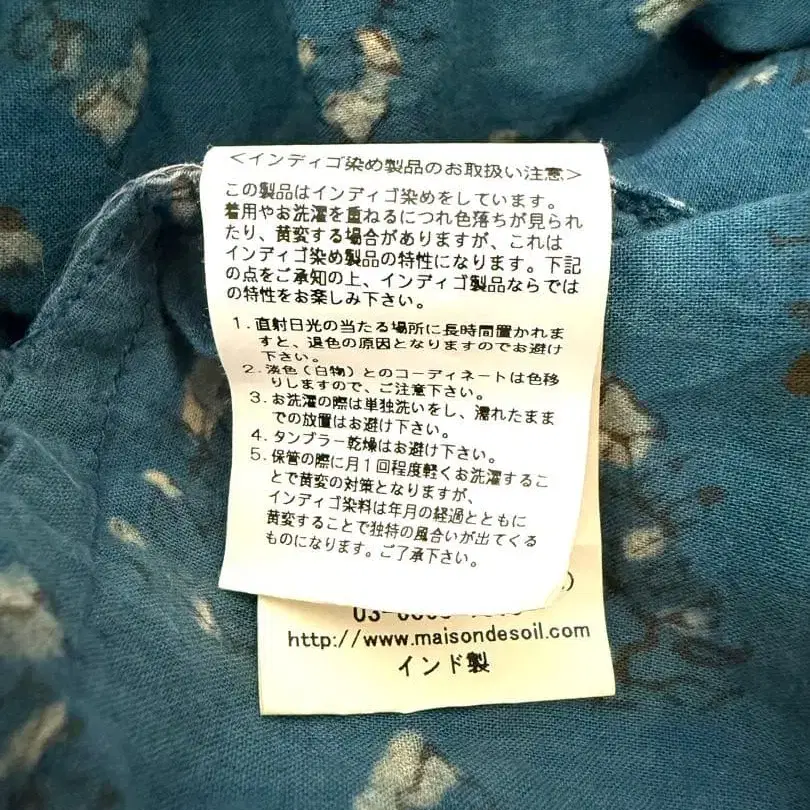 <インディゴ染め製品のお取扱い注意>
この製品はインディゴ染めをしています。
着用やお洗濯を重ねるにつれ色落ちが見られ
たり、黄変する場合がありますが、これは
インディゴ染め製品の特性になります。下記
の点をご承知の上、インディゴ製品ならでは
の特性をお楽しみ下さい。
1. 直射日光の当たる場所に長時間置かれま
すと、退色の原因となりますのでお避け
下さい。
2. 淡色(白物)とのコーディネートは色移
りしますので、ご注意下さい。
3. お洗濯の際は単独洗いをし、濡れたまま
での放置はお避け下さい。
4. タンブラー乾燥はお避け下さい。
5. 保管の際に月1回程度軽くお洗濯するこ
とで黄変の対策となりますが、
インディゴ染料は年月の経過とともに
黄変することで独特の風合いが出てくる
ものになります。ご了承下さい。
http://www.maisondesoil.com
インド製